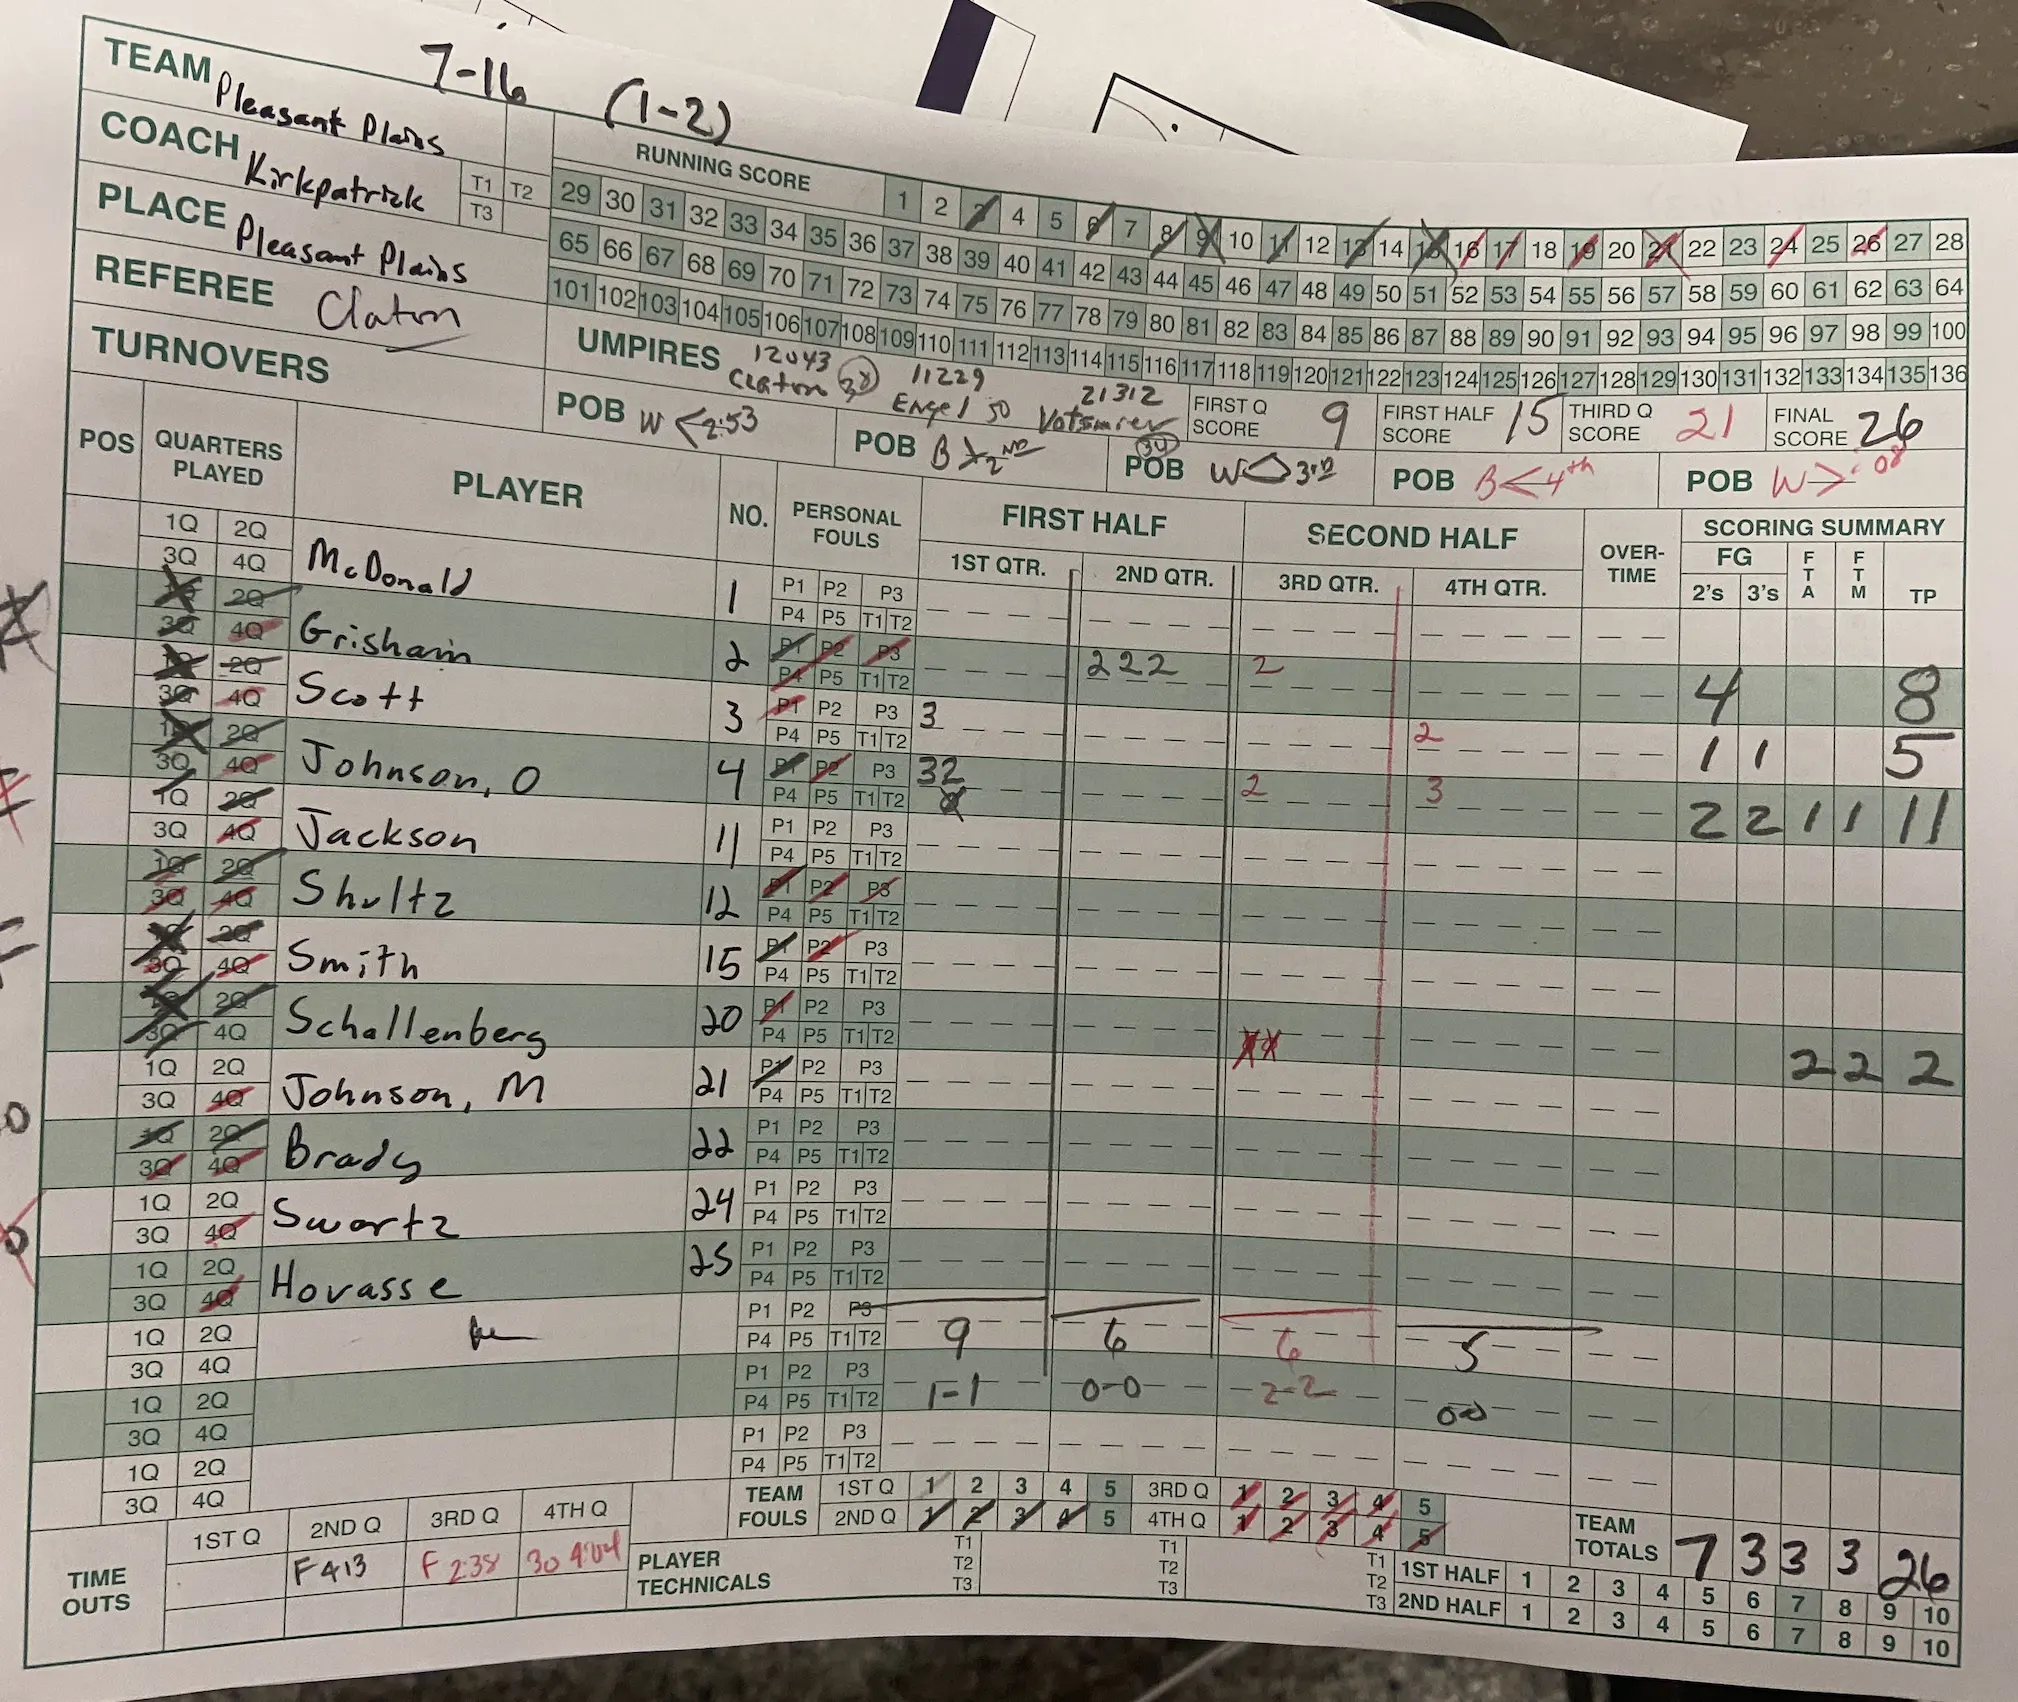 7-16 (1-2)
TEAM Pleasant Plains
COACH Kirkpatrick
T1 T2
T3
PLACE Pleasant Plains
REFEREE Claton
TURNOVERS
RUNNING SCORE 1 2 3 4 5 6 7 8 9 10 11 12 13 14 15 16 17 18 19 20 21 22 23 24 25 26 27 28
29 30 31 32 33 34 35 36 37 38 39 40 41 42 43 44 45 46 47 48 49 50 51 52 53 54 55 56 57 58 59 60 61 62 63 64
65 66 67 68 69 70 71 72 73 74 75 76 77 78 79 80 81 82 83 84 85 86 87 88 89 90 91 92 93 94 95 96 97 98 99 100
101 102 103 104 105 106 107 108 109 110 111 112 113 114 115 116 117 118 119 120 121 122 123 124 125 126 127 128 129 130 131 132 133 134 135 136
UMPIRES 12043 11229 21312
Claton Engel 50
FIRST Q SCORE 9 FIRST HALF SCORE 15 THIRD Q SCORE 21 FINAL SCORE 26
POB W < 2:53 POB B > 2ND POB W 3rd POB B < 4th POB W > :08
POS QUARTERS PLAYED PLAYER NO. PERSONAL FOULS FIRST HALF SECOND HALF OVER-TIME SCORING SUMMARY
1ST QTR. 2ND QTR. 3RD QTR. 4TH QTR. FG 2's 3's FTA FTM TP
1Q 2Q 3Q 4Q McDonald 1 P1 P2 P3 P4 P5 T1 T2
1Q 2Q 3Q 4Q Grisham 2 P1 P2 P3 P4 P5 T1 T2 2 2 2 2 4 8
1Q 2Q 3Q 4Q Scott 3 P1 P2 P3 P4 P5 T1 T2 3 2 1 1 5
1Q 2Q 3Q 4Q Johnson, O 4 P1 P2 P3 P4 P5 T1 T2 3 2 2 3 2 2 1 1 11
1Q 2Q 3Q 4Q Jackson 11 P1 P2 P3 P4 P5 T1 T2
1Q 2Q 3Q 4Q Shultz 12 P1 P2 P3 P4 P5 T1 T2
1Q 2Q 3Q 4Q Smith 15 P1 P2 P3 P4 P5 T1 T2
1Q 2Q 3Q 4Q Schallenberg 20 P1 P2 P3 P4 P5 T1 T2 2 2 2
1Q 2Q 3Q 4Q Johnson, M 21 P1 P2 P3 P4 P5 T1 T2
1Q 2Q 3Q 4Q Brady 22 P1 P2 P3 P4 P5 T1 T2
1Q 2Q 3Q 4Q Swartz 24 P1 P2 P3 P4 P5 T1 T2
1Q 2Q 3Q 4Q Hovasse 25 P1 P2 P3 P4 P5 T1 T2
1Q 2Q 3Q 4Q P1 P2 P3 P4 P5 T1 T2 9 6 6 5
1Q 2Q 3Q 4Q P1 P2 P3 P4 P5 T1 T2 1-1 0-0 2-2 0-0
1Q 2Q 3Q 4Q P1 P2 P3 P4 P5 T1 T2
TEAM FOULS 1ST Q 1 2 3 4 5 3RD Q 1 2 3 4 5
2ND Q 1 2 3 4 5 4TH Q 1 2 3 4 5
TEAM TOTALS 7 3 3 3 26
TIME OUTS 1ST Q 2ND Q 3RD Q 4TH Q
F 413 F 2:38 30 4:04
PLAYER TECHNICALS T1 T2 T3 T1 T2 T3 T1 T2 T3
1ST HALF 1 2 3 4 5 6 7 8 9 10
2ND HALF 1 2 3 4 5 6 7 8 9 10